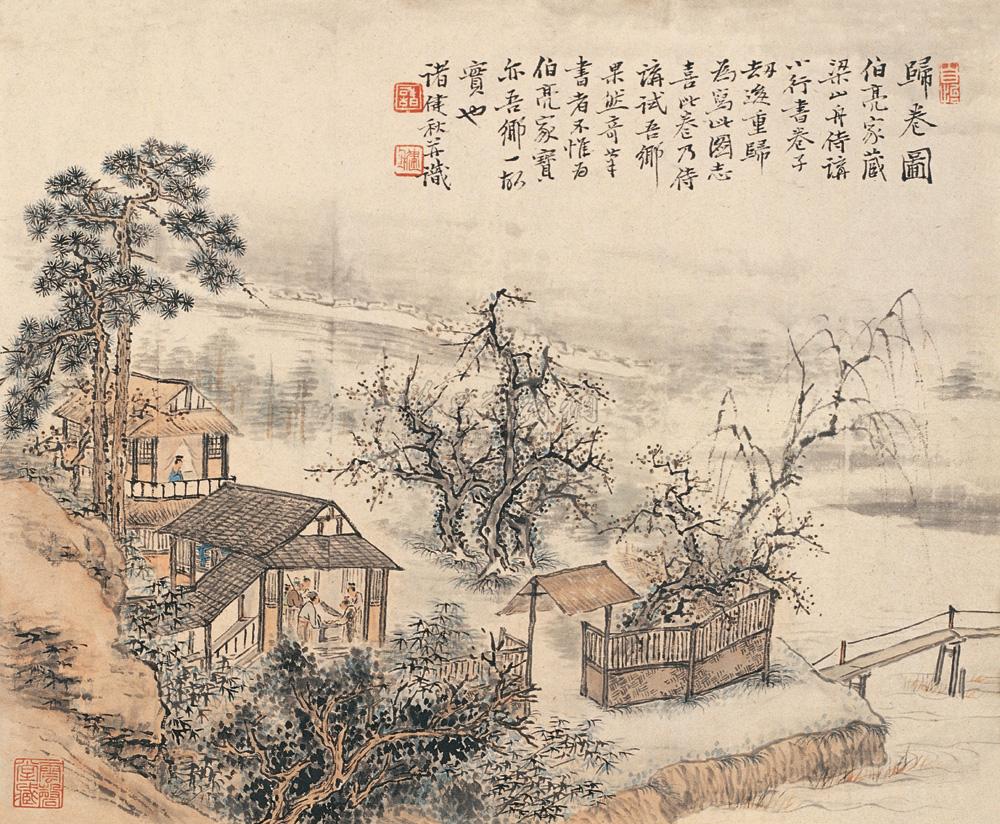 歸卷圖
伯亮家藏
梁山舟侍講
小行書卷子
重歸
為寫此圖志
喜此卷乃侍
講試吾鄉
果然奇筆
書者不惟為
伯亮家寶
亦吾鄉一故
實也
諸健秋并識